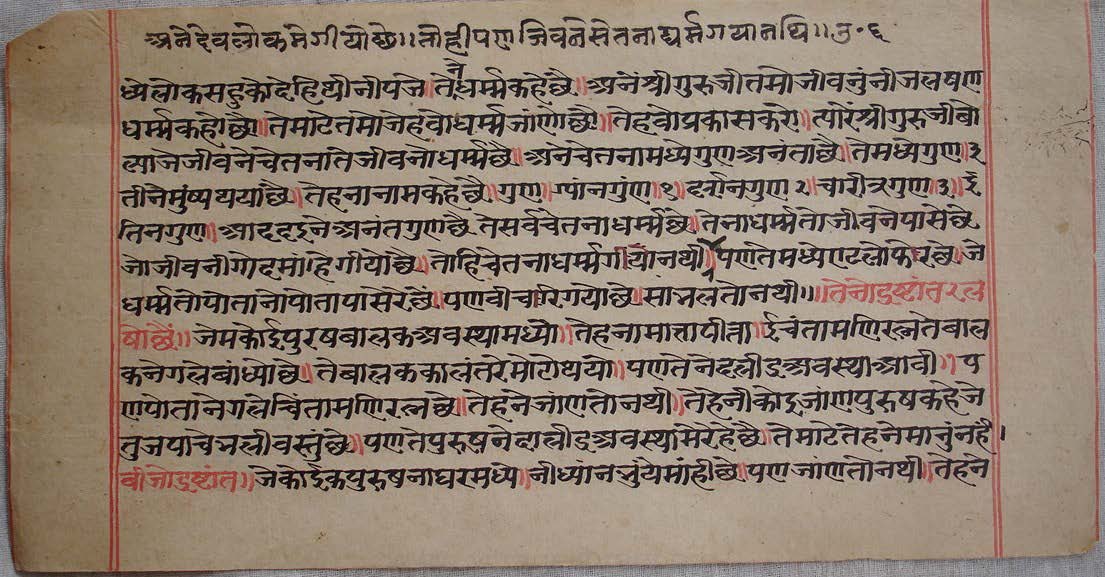 अने देवलोकमे गीयो छै॥ तोही पण जिवने चेतना धर्म गयो नथि॥ उ.६
ध्ये लोक सहु को देहि थी नीपजे॥ ते ने धर्म्म कहे छै॥ अने श्रीगुरुजी तमो जीवनुं नीज लषण
धर्म्म कहो छो॥ ते माटे तमो जहेवो धर्म्म जांणो छो॥ तेहवो प्रकास करो॥ त्यारें श्रीगुरुजी बो
ल्या जे जीवने चेतना ते जीवनो धर्म्म छै॥ अने चेतना मध्ये गुण अनंता छै॥ ते मध्य गुण॥ ३
तीने मुंष्य थया छै॥ तेहना नाम कहे छै॥ गुण॥ ग्यांन गुंण॥ १॥ दर्शन गुण २॥ चारीत्र गुण ३॥ ईं
तिन गुण॥ आद दइने अनंत गुण छै ते सर्व चेतना धर्म्म छै॥ तेना धर्म्म तो जीवने पासे छै
जो जीव नीगोद मांहि गीयो छै॥ तो हि चेतना धर्म्म गीयो नथी॥ पण ते मध्ये एटलो फेर छै॥ जे
धर्म्म तो पोतानो पोता पासे रे छै॥ पण वीचारि गयो छै॥ सांभलतो नथी॥ ॥तेनो द्रुष्टांत रल
षो छै॥ जेम कोई पुरष बालक अवस्था मध्ये॥ तेहना माता पीता॥ ईं चंतामणि रत्न ते बाल
कने गले बांध्यो छै॥ ते बालक कालंतरे मोटो थयो॥ पण तेने दलीद्र अवस्था आवी॥ प
ण पोताने गले चिंतामणि रत्न छै॥ तेहने जांणतो नथी॥ तेहनी कोइ जांण पुरुष कहे जे
तुज पाचे भली वस्तुं छै॥ पण ते पुरुषने दालीद्र अवस्था मे रे हे छै॥ ते माटे तेहने मानुं नहै।
बीजो द्रुष्टांत॥ जे कोई क पुरुषना घर मध्ये॥ नीध्यान भुंय मांही छै॥ पण जांणतो नथी॥ तेहने